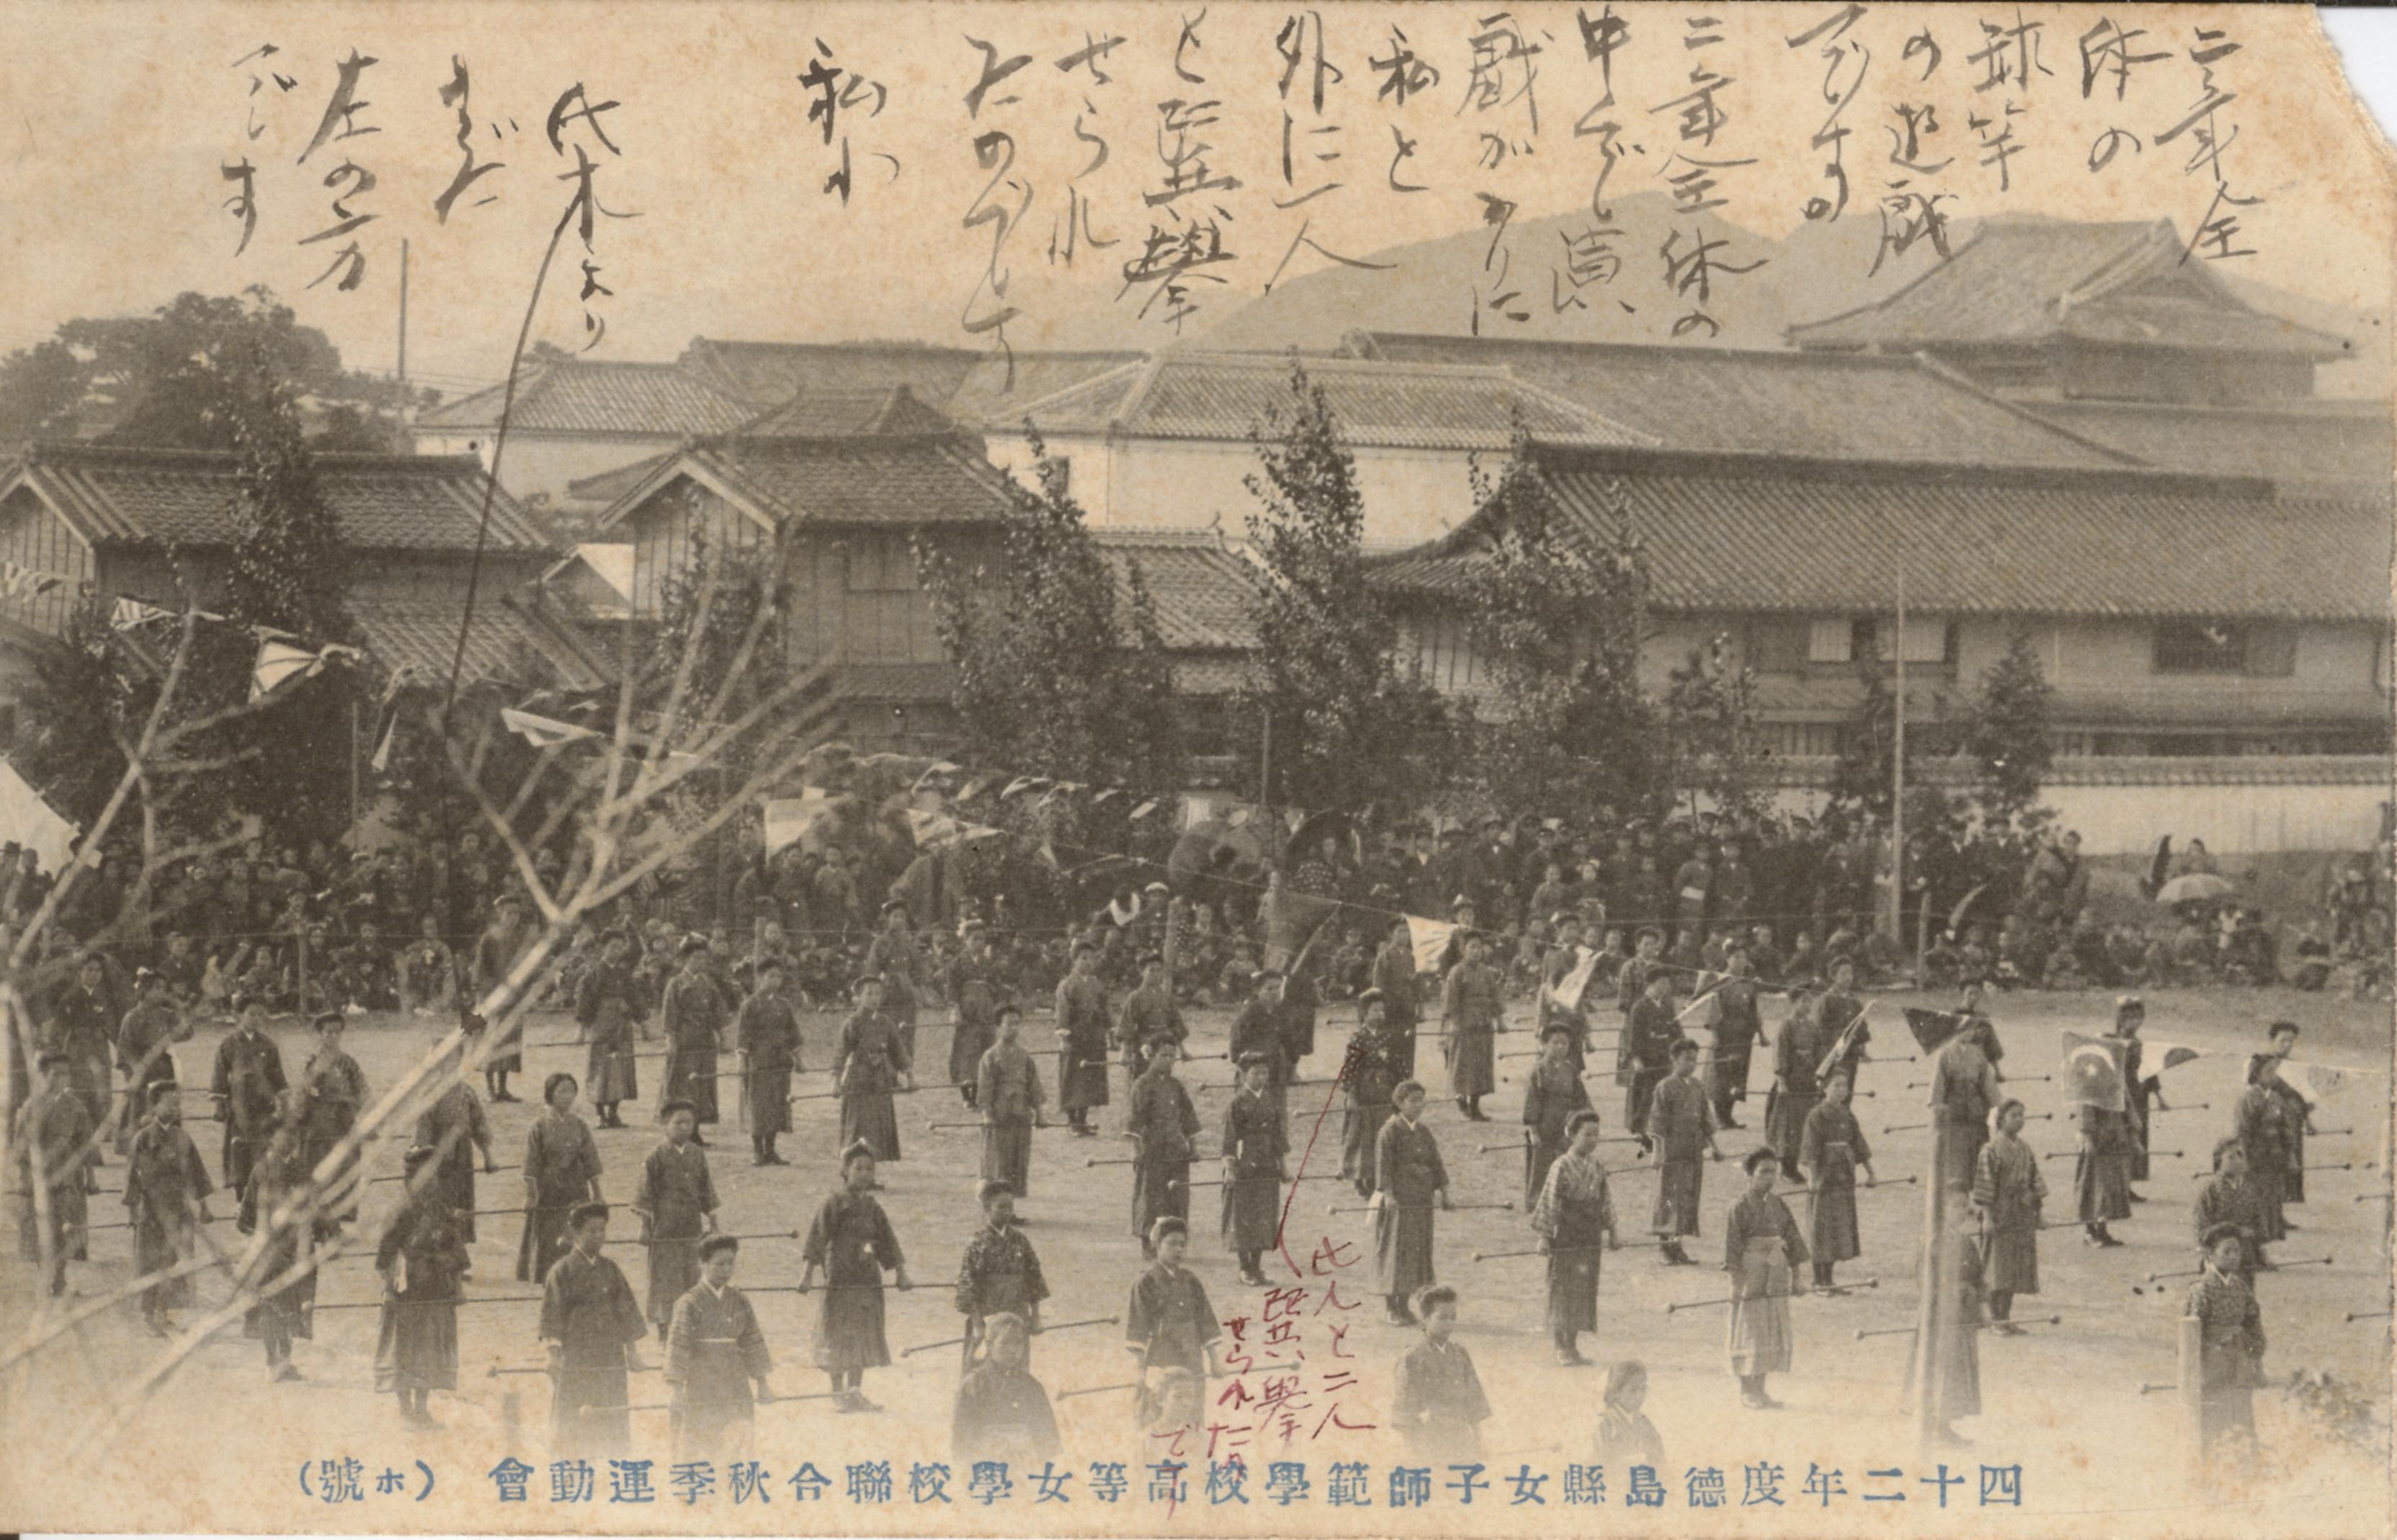 二年全
体の
球竿
の遊戯
であります
二年全体の
中で一慎
戯がありに
私と
外に一人
と選擧
せられ
たのです
私わ
此木より
まだ
左の方
です
此人と二人
選擧
せられたの
で
四十二年度德島縣女子師範學校高等女學校聯合秋季運動會 (ホ號)